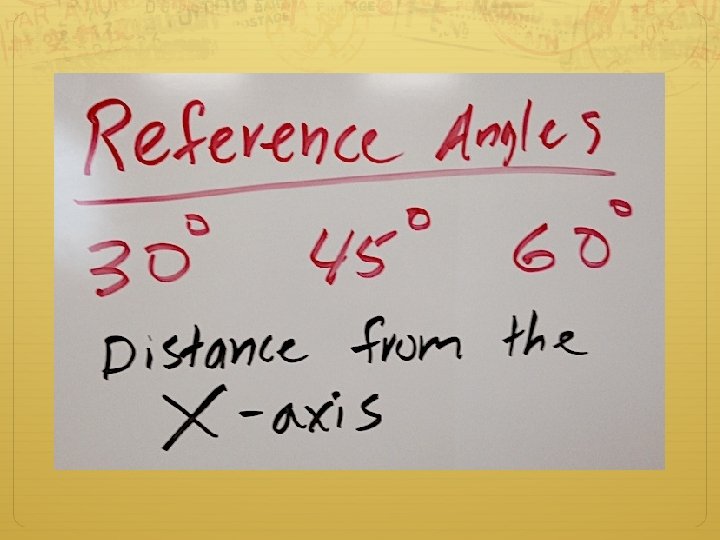 Reference Angles
30° 45° 60°
Distance from the
X-axis